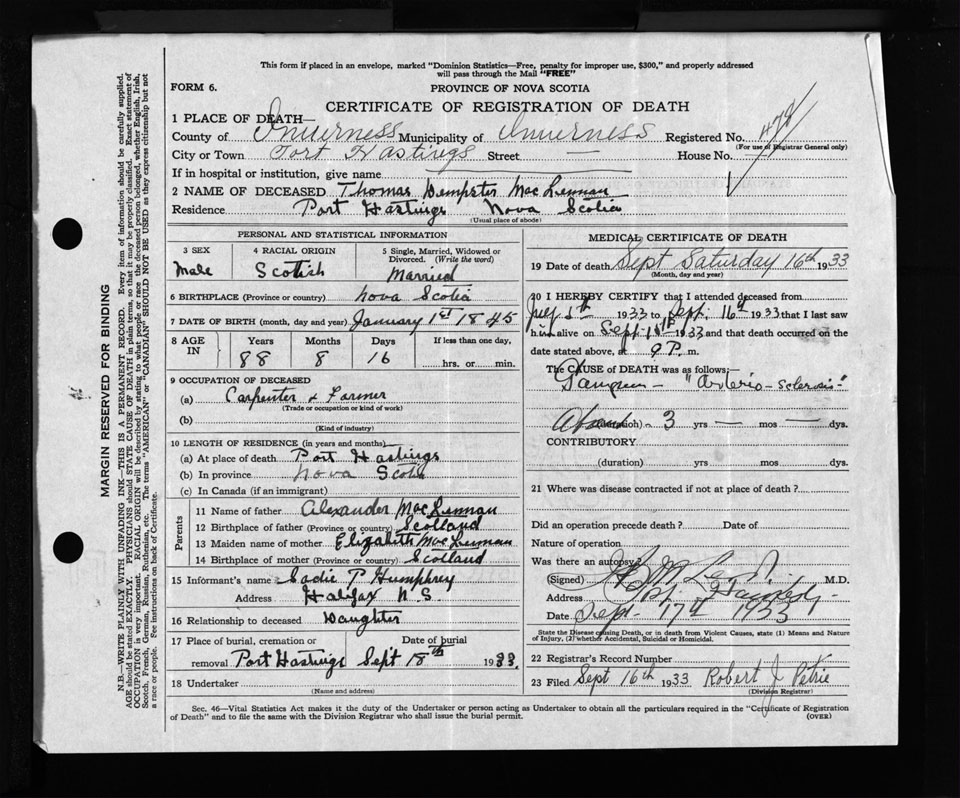 This form if placed in an envelope, marked "Dominion Statistics—Free, penalty for improper use, $300," and properly addressed
will pass through the Mail "FREE"
FORM 6.
PROVINCE OF NOVA SCOTIA
CERTIFICATE OF REGISTRATION OF DEATH
1 PLACE OF DEATH—
County of Inverness Municipality of Inverness Registered No. 478
(For use of Registrar General only)
City or Town Port Hastings Street — House No.
If in hospital or institution, give name
2 NAME OF DECEASED Thomas Dempster MacLennan
Residence Port Hastings Nova Scotia
(Usual place of abode)
PERSONAL AND STATISTICAL INFORMATION
3 SEX
Male
4 RACIAL ORIGIN
Scotish
5 Single, Married, Widowed or
Divorced. (Write the word)
Married
6 BIRTHPLACE (Province or country) Nova Scotia
7 DATE OF BIRTH (month, day and year) January 1st 1845
8 AGE IN
Years Months Days If less than one day,
88 8 16 hrs. or min.
9 OCCUPATION OF DECEASED
(a) Carpenter & Farmer
(Trade or occupation or kind of work)
(b)
(Kind of industry)
10 LENGTH OF RESIDENCE (in years and months)
(a) At place of death Port Hastings
(b) In province Nova Scotia
(c) In Canada (if an immigrant)
Parents
11 Name of father Alexander MacLennan
12 Birthplace of father (Province or country) Scotland
13 Maiden name of mother Elizabeth MacLennan
14 Birthplace of mother (Province or country) Scotland
15 Informant's name Sadie P Humphrey
Address Halifax N.S.
16 Relationship to deceased Daughter
17 Place of burial, cremation or Date of burial
removal Port Hastings Sept 18th 1933.
18 Undertaker
(Name and address)
MEDICAL CERTIFICATE OF DEATH
19 Date of death Sept Saturday 16th 1933
(Month, day and year)
20 I HEREBY CERTIFY that I attended deceased from
July 5th 1933 to Sept. 16th 1933 that I last saw
him alive on Sept. 1933 and that death occurred on the
date stated above, at 9 P. m.
The CAUSE of DEATH was as follows:—
"Arterio-sclerosis"
(duration) - 3 yrs — mos — dys.
CONTRIBUTORY
(duration) yrs. mos. dys.
21 Where was disease contracted if not at place of death?
Did an operation precede death? Date of
Nature of operation
Was there an autopsy?
(Signed) M.D.
Address
Date Sept. 17th 1933
State the Disease causing Death, or in death from Violent Causes, state (1) Means and Nature
of Injury, (2) whether Accidental, Suicidal or Homicidal.
22 Registrar's Record Number
23 Filed Sept 16th 1933 Robert J Petrie
(Division Registrar)
Sec. 46—Vital Statistics Act makes it the duty of the Undertaker or person acting as Undertaker to obtain all the particulars required in the "Certificate of Registration
of Death" and to file the same with the Division Registrar who shall issue the burial permit.
(OVER)
MARGIN RESERVED FOR BINDING
N.B.—WRITE PLAINLY WITH UNFADING INK—THIS IS A PERMANENT RECORD. Every item of information should be carefully supplied.
AGE should be stated EXACTLY. PHYSICIANS should STATE CAUSE OF DEATH in plain terms, so that it may be properly classified. Exact statement of
OCCUPATION is very important. RACIAL ORIGIN will be described by stating to what people or race the deceased person belonged, whether English, Irish,
Scotch, French, German, Russian, Ruthenian, etc. The terms "AMERICAN" or "CANADIAN" SHOULD NOT BE USED as they express citizenship but not
a race or people. See instructions on back of Certificate.